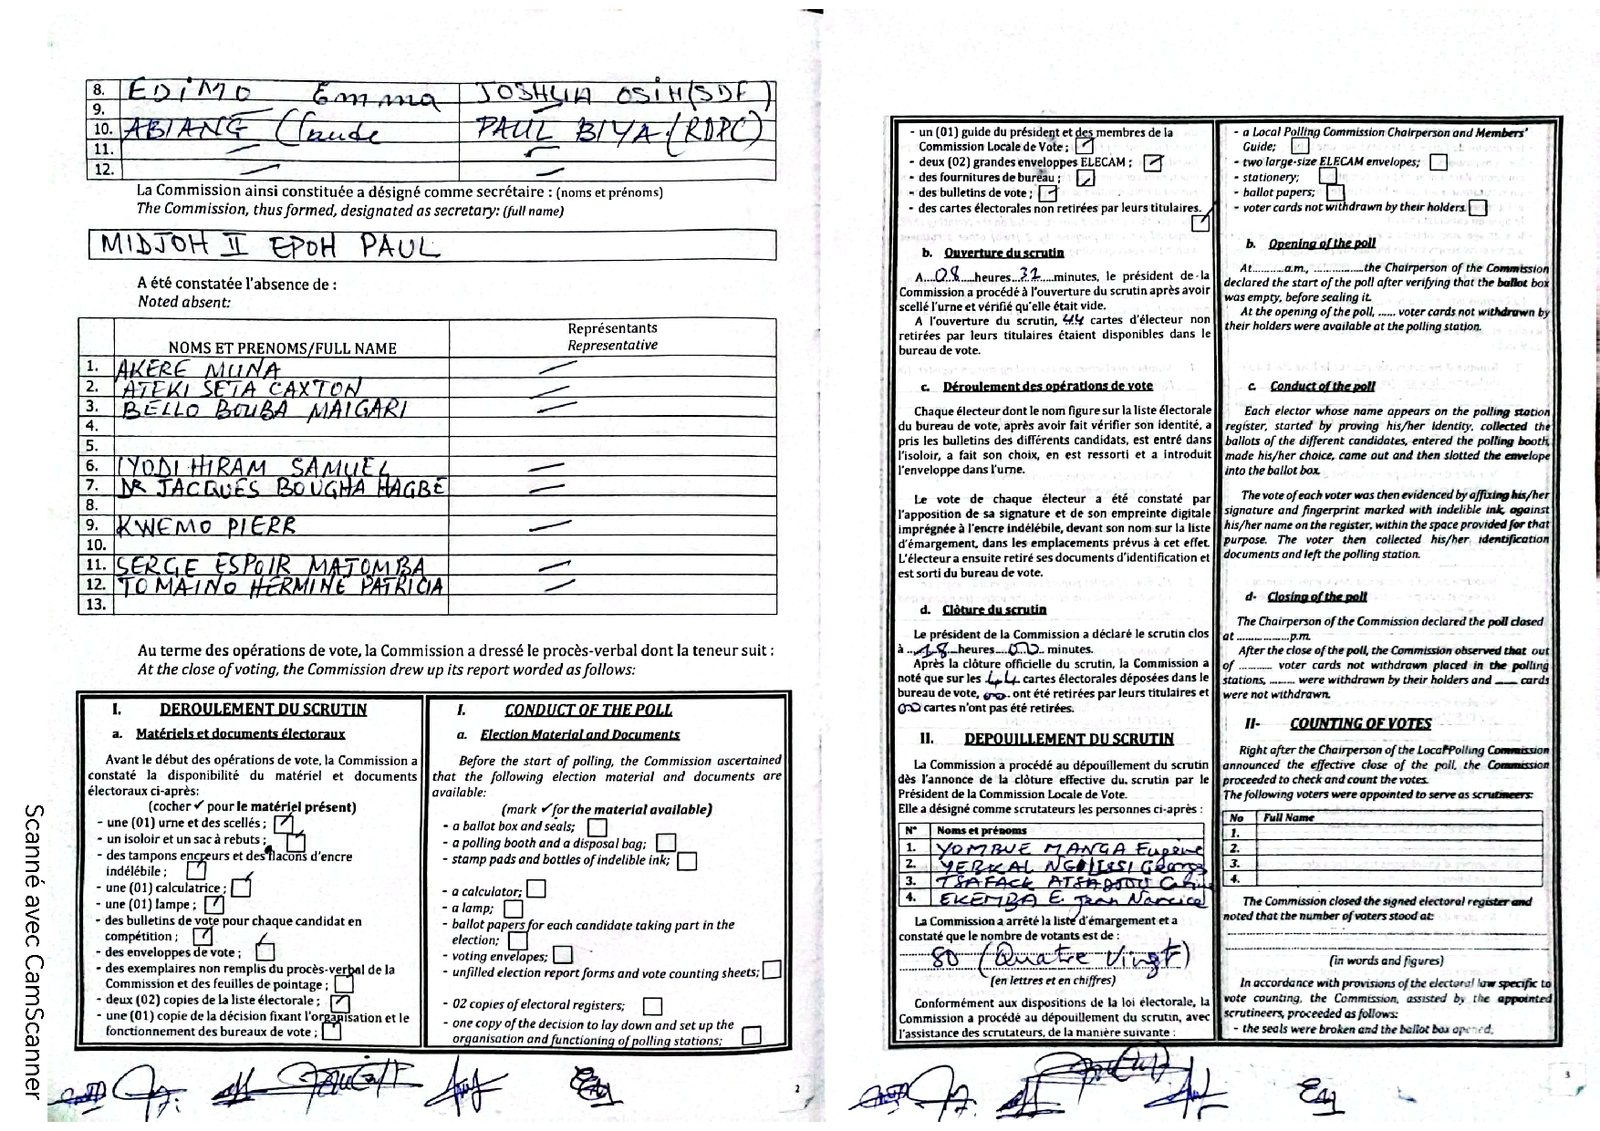 8. EDIMO Emma JOSHUA OSIH (SDF)
9.
10. ABIANG Claude PAUL BIYA (RDPC)
11.
12.
La Commission ainsi constituée a désigné comme secrétaire : (noms et prénoms)
The Commission, thus formed, designated as secretary: (full name)
MIDJOH II EPOH PAUL
A été constatée l'absence de :
Noted absent:
NOMS ET PRENOMS/FULL NAME
Représentants
Representative
1. AKERE MUNA
2. ATEKI SETA CAXTON
3. BELLO BOUBA MAIGARI
4.
5.
6. IYODI HIRAM SAMUEL
7. DR JACQUES BOUGHA HAGBE
8.
9. KWEMO PIERR
10.
11. SERGE ESPOIR MATOMBA
12. TOMAINO HERMINE PATRICIA
13.
Au terme des opérations de vote, la Commission a dressé le procès-verbal dont la teneur suit :
At the close of voting, the Commission drew up its report worded as follows:
I. DEROULEMENT DU SCRUTIN
a. Matériels et documents électoraux
Avant le début des opérations de vote, la Commission a
constaté la disponibilité du matériel et documents
électoraux ci-après:
(cocher ✓ pour le matériel présent)
- une (01) urne et des scellés ;
- un isoloir et un sac à rebuts ;
- des tampons encreurs et des flacons d'encre
indélébile ;
- une (01) calculatrice ;
- une (01) lampe ;
- des bulletins de vote pour chaque candidat en
compétition ;
- des enveloppes de vote ;
- des exemplaires non remplis du procès-verbal de la
Commission et des feuilles de pointage ;
- deux (02) copies de la liste électorale ;
- une (01) copie de la décision fixant l'organisation et le
fonctionnement des bureaux de vote ;
I. CONDUCT OF THE POLL
a. Election Material and Documents
Before the start of polling, the Commission ascertained
that the following election material and documents are
available:
(mark ✓ for the material available)
- a ballot box and seals;
- a polling booth and a disposal bag;
- stamp pads and bottles of indelible ink;
- a calculator;
- a lamp;
- ballot papers for each candidate taking part in the
election;
- voting envelopes;
- unfilled election report forms and vote counting sheets;
- 02 copies of electoral registers;
- one copy of the decision to lay down and set up the
organisation and functioning of polling stations;
2
Scanné avec CamScanner
- un (01) guide du président et des membres de la
Commission Locale de Vote ;
- deux (02) grandes enveloppes ELECAM ;
- des fournitures de bureau ;
- des bulletins de vote ;
- des cartes électorales non retirées par leurs titulaires.
b. Ouverture du scrutin
A....08....heures..32....minutes, le président de la
Commission a procédé à l'ouverture du scrutin après avoir
scellé l'urne et vérifié qu'elle était vide.
A l'ouverture du scrutin, 44 cartes d'électeur non
retirées par leurs titulaires étaient disponibles dans le
bureau de vote.
c. Déroulement des opérations de vote
Chaque électeur dont le nom figure sur la liste électorale
du bureau de vote, après avoir fait vérifier son identité, a
pris les bulletins des différents candidats, est entré dans
l'isoloir, a fait son choix, en est ressorti et a introduit
l'enveloppe dans l'urne.
Le vote de chaque électeur a été constaté par
l'apposition de sa signature et de son empreinte digitale
imprégnée à l'encre indélébile, devant son nom sur la liste
d'émargement, dans les emplacements prévus à cet effet.
L'électeur a ensuite retiré ses documents d'identification et
est sorti du bureau de vote.
d. Clôture du scrutin
Le président de la Commission a déclaré le scrutin clos
à ..18...heures...00... minutes.
Après la clôture officielle du scrutin, la Commission a
noté que sur les 44 cartes électorales déposées dans le
bureau de vote, 00 ont été retirées par leurs titulaires et
00 cartes n'ont pas été retirées.
II. DEPOUILLEMENT DU SCRUTIN
La Commission a procédé au dépouillement du scrutin
dès l'annonce de la clôture effective du scrutin par le
Président de la Commission Locale de Vote.
Elle a désigné comme scrutateurs les personnes ci-après :
N° Noms et prénoms
1. YOMBUE MANGA Eugene
2. YERKAL
3. TSAFACK
4. EKEMBA E. Jean Narcice
La Commission a arrêté la liste d'émargement et a
constaté que le nombre de votants est de :
80 (Quatre Vingt)
(en lettres et en chiffres)
Conformément aux dispositions de la loi électorale, la
Commission a procédé au dépouillement du scrutin, avec
l'assistance des scrutateurs, de la manière suivante :
- a Local Polling Commission Chairperson and Members'
Guide;
- two large-size ELECAM envelopes;
- stationery;
- ballot papers;
- voter cards not withdrawn by their holders.
b. Opening of the poll
At...........a.m., ................the Chairperson of the Commission
declared the start of the poll after verifying that the ballot box
was empty, before sealing it.
At the opening of the poll, ...... voter cards not withdrawn by
their holders were available at the polling station.
c. Conduct of the poll
Each elector whose name appears on the polling station
register, started by proving his/her identity, collected the
ballots of the different candidates, entered the polling booth,
made his/her choice, came out and then slotted the envelope
into the ballot box.
The vote of each voter was then evidenced by affixing his/her
signature and fingerprint marked with indelible ink, against
his/her name on the register, within the space provided for that
purpose. The voter then collected his/her identification
documents and left the polling station.
d- Closing of the poll
The Chairperson of the Commission declared the poll closed
at ..................p.m.
After the close of the poll, the Commission observed that out
of .......... voter cards not withdrawn placed in the polling
stations, ........ were withdrawn by their holders and ....... cards
were not withdrawn.
II- COUNTING OF VOTES
Right after the Chairperson of the Local Polling Commission
announced the effective close of the poll, the Commission
proceeded to check and count the votes.
The following voters were appointed to serve as scrutineers:
No Full Name
1.
2.
3.
4.
The Commission closed the signed electoral register and
noted that the number of voters stood at:
(in words and figures)
In accordance with provisions of the electoral law specific to
vote counting, the Commission, assisted by the appointed
scrutineers, proceeded as follows:
- the seals were broken and the ballot box opened;
3